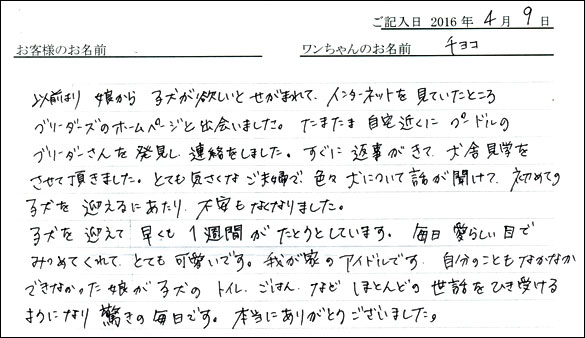 ご記入日 2016 年 4 月 9 日
お客様のお名前 ワンちゃんのお名前 チョコ
以前より 娘から 子犬が欲しいと せがまれて、インターネットを見ていたところ
ブリーダーズのホームページと出会いました。たまたま 自宅近くに プードルの
ブリーダーさんを 発見し 連絡をしました。すぐに 返事がきて、犬舎見学を
させて頂きました。とても 気さくな ご夫婦で、色々 犬について 話が聞けて、初めての
子犬を 迎えるにあたり、不安も なくなりました。
子犬を 迎えて 早くも 1週間が たとうとしています。 毎日 愛らしい 目で
みつめてくれて、とても 可愛いです。我が家の アイドルです。自分のことも なかなか
できなかった 娘が 子犬の トイレ、ごはん、など ほとんどの 世話を ひき受ける
ようになり 驚きの 毎日です。本当にありがとうございました。